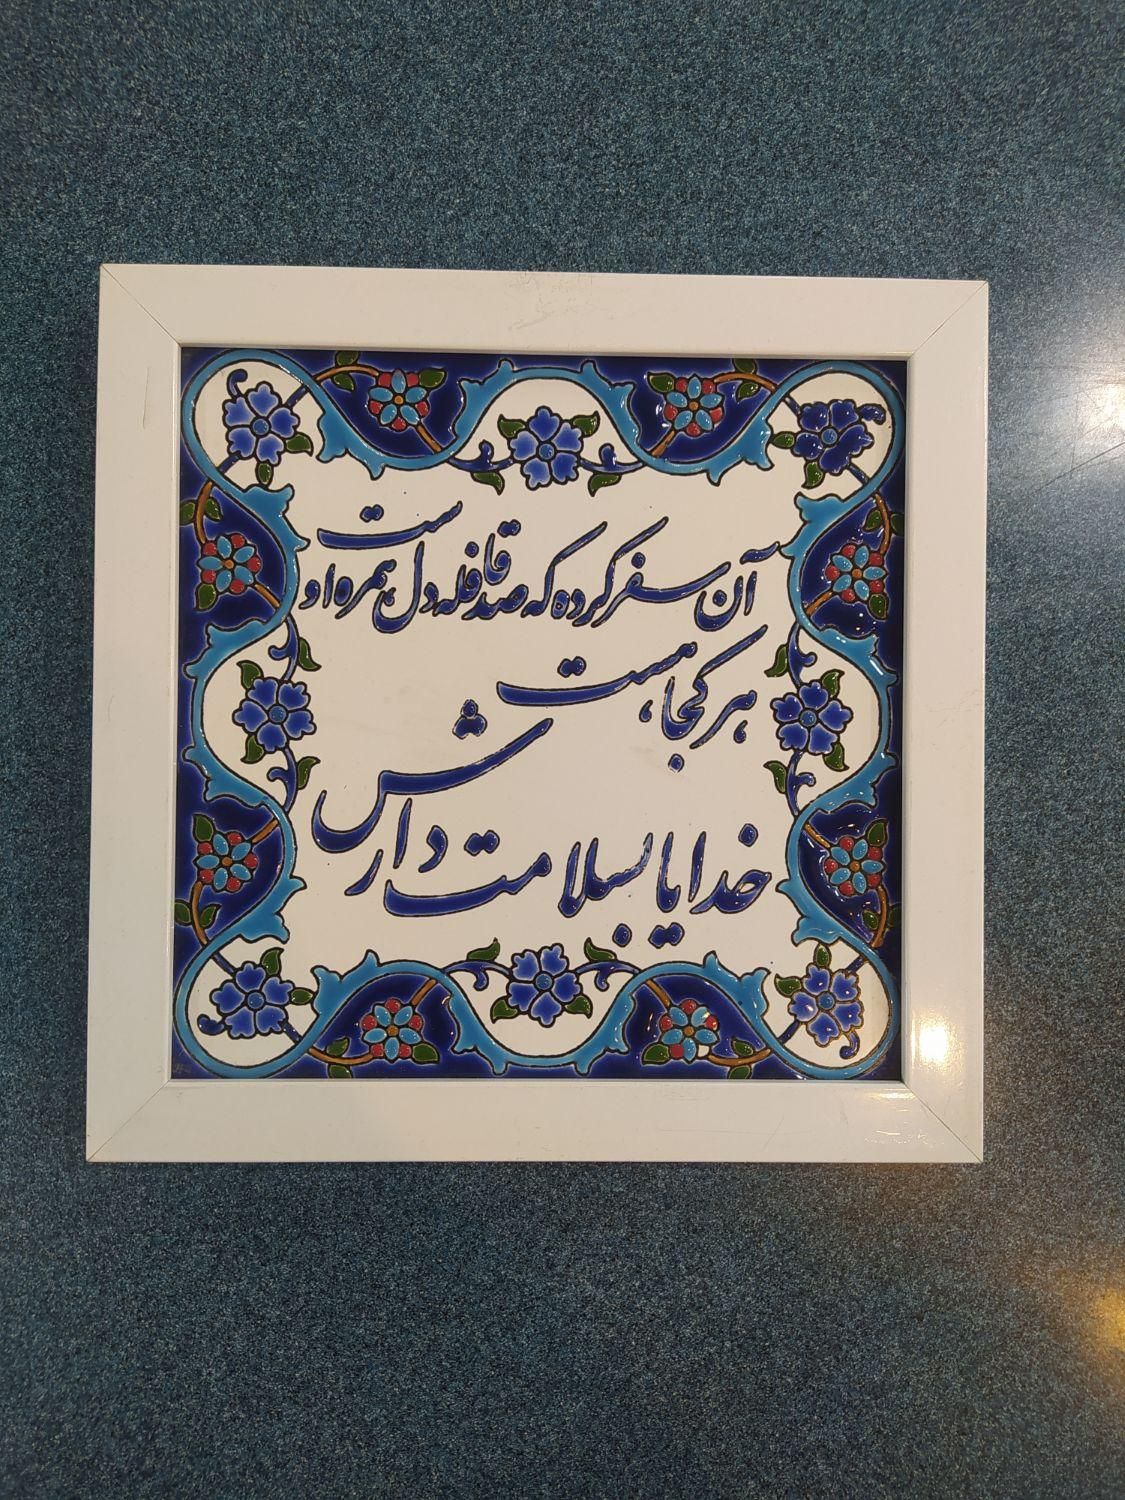 آن سفر کرده که صد قافله دل همره اوست
هر کجا هست
خدایا بسلامت دارش